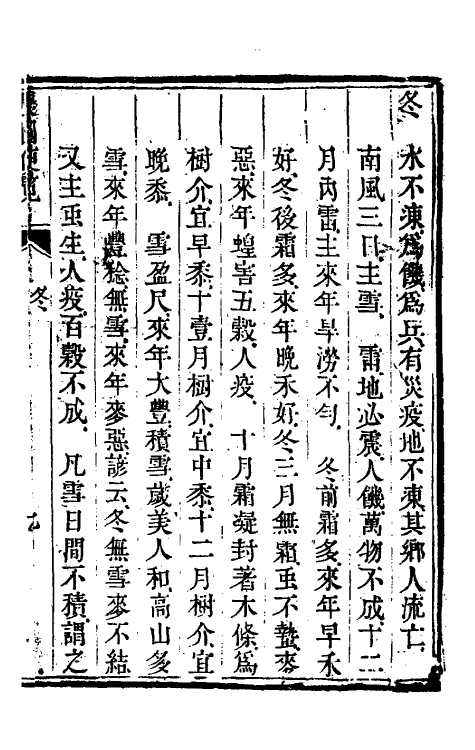 冬
水不凍爲饑爲兵有災疫地不凍其鄉人流亡
南風三日主雪　雷地必震人饑萬物不成十二
月內雷主來年旱澇不勻　冬前霜多來年旱禾
好冬後霜多來年晚禾好冬三月無霜虫不蟄麥
惡來年蝗害五穀人疫　十月霜凝封著木條爲
樹介宜早黍十壹月樹介宜中黍十二月樹介宜
晚黍　雪盈尺來年大豐積雪歲美人和高山多
雪來年豐稔無雪來年麥惡諺云冬無雪麥不結
又主虫生人疫百穀不成　凡雪日間不積謂之
冬